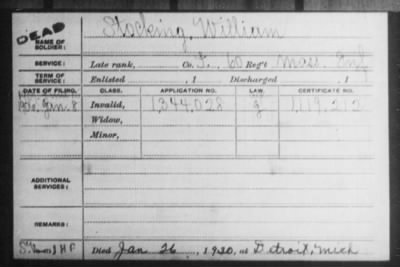 DEAD
NAME OF SOLDIER: Stocking, William
SERVICE: Late rank, Co. F. 60 Reg't Mass. Inf
TERM OF SERVICE: Enlisted , 1 Discharged , 1
DATE OF FILING. CLASS. APPLICATION NO. LAW. CERTIFICATE NO.
Jan. 8 Invalid, 1,344,028 g 1,119,212
Widow,
Minor,
ADDITIONAL SERVICES:
REMARKS:
Died Jan 26, 1920, at Detroit, Mich